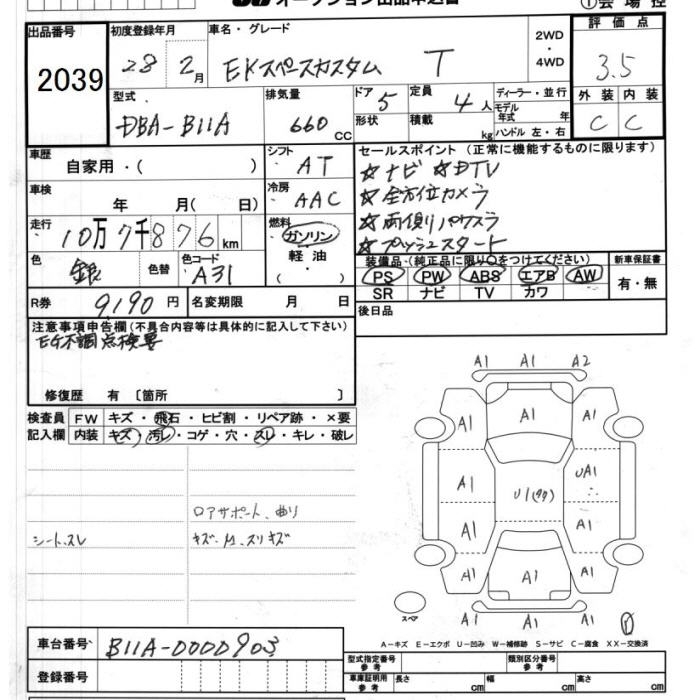 オークション出品申込書
①会場控
出品番号 初度登録年月 車名・グレード 2WD・4WD 評価点
2039 28 2月 EKスペースカスタム T 3.5
型式 排気量 ドア 定員 ディーラー・並行 外装 内装
DBA-B11A 660cc 5 4人 モデル年式 年 C C
形状 積載 kg ハンドル 左・右
車歴 シフト セールスポイント(正常に機能するものに限ります)
自家用・( ) AT ☆ナビ ☆DTV
車検 冷房 ☆全方位カメラ
年 月( 日) AAC ☆両側パワスラ
走行 燃料 ☆プッシュスタート
10万7千876km ガソリン・軽油・( )
装備品(純正品に限り○をつけてください) 新車保証書
色 銀 色替 色コード A31 PS PW ABS エアB AW 有・無
SR ナビ TV カワ
R券 9,190円 名変期限 月 日 後日品
注意事項申告欄(不具合内容等は具体的に記入して下さい)
EG不調点検要
修復歴 有〔箇所 〕
検査員 FW キズ・飛石・ヒビ割・リペア跡・×要
記入欄 内装 キズ・汚レ・コゲ・穴・スレ・キレ・破レ
ロアサポート、曲り
シート、スレ キズ、M、スリキズ
A1 A1 A2
A1 A1 A1
A1 U1(99) UA1
A1 A1
A1 A1 A1
スペア A1 A1 A1
A-キズ E-エクボ U-凹み W-補修跡 S-サビ C-腐食 XX-交換済
車台番号 B11A-0000903
型式指定番号 参考 類別区分番号 参考
登録番号 車庫証明用 参考 長さ cm 幅 cm 高さ cm